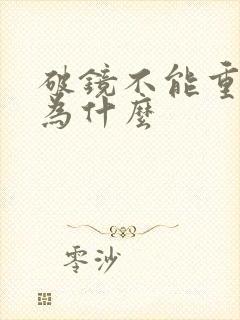 破鏡不能重
為什麼
零沙